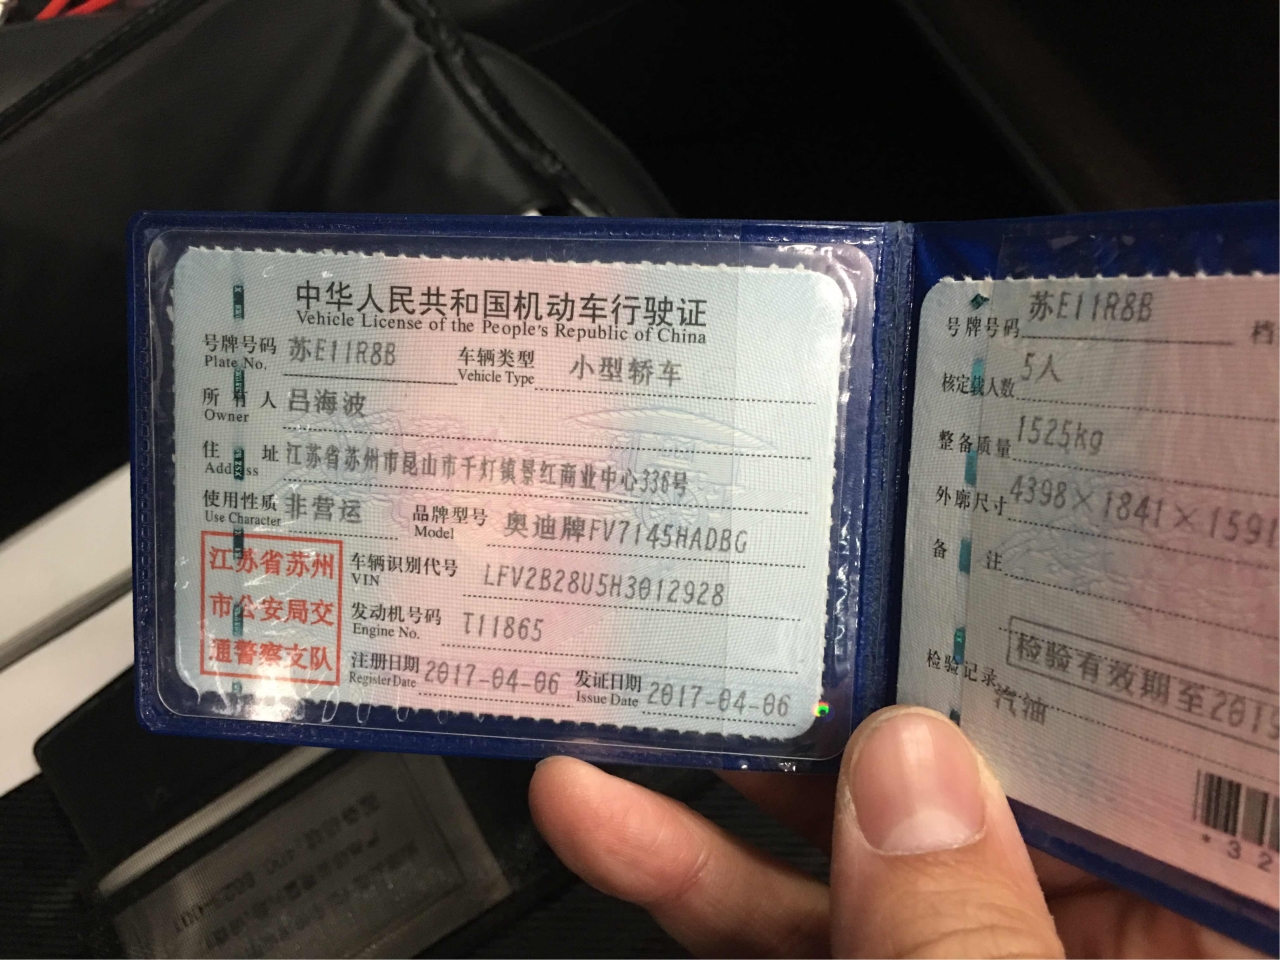 中华人民共和国机动车行驶证
Vehicle License of the People's Republic of China
号牌号码 苏E11R8B 车辆类型 小型轿车
Plate No. Vehicle Type
所有人 吕海波
Owner
住址 江苏省苏州市昆山市千灯镇景红商业中心336号
Address
使用性质 非营运 品牌型号 奥迪牌FV7145HADBG
Use Character Model
江苏省苏州
市公安局交
通警察支队
车辆识别代号 LFV2B28U5H3012928
VIN
发动机号码 T11865
Engine No.
注册日期 2017-04-06 发证日期 2017-04-06
Register Date Issue Date
号牌号码 苏E11R8B 档
核定载人数 5人
整备质量 1525kg
外廓尺寸 4398×1841×1591
备注
检验有效期至2019
检验记录
汽油
*32